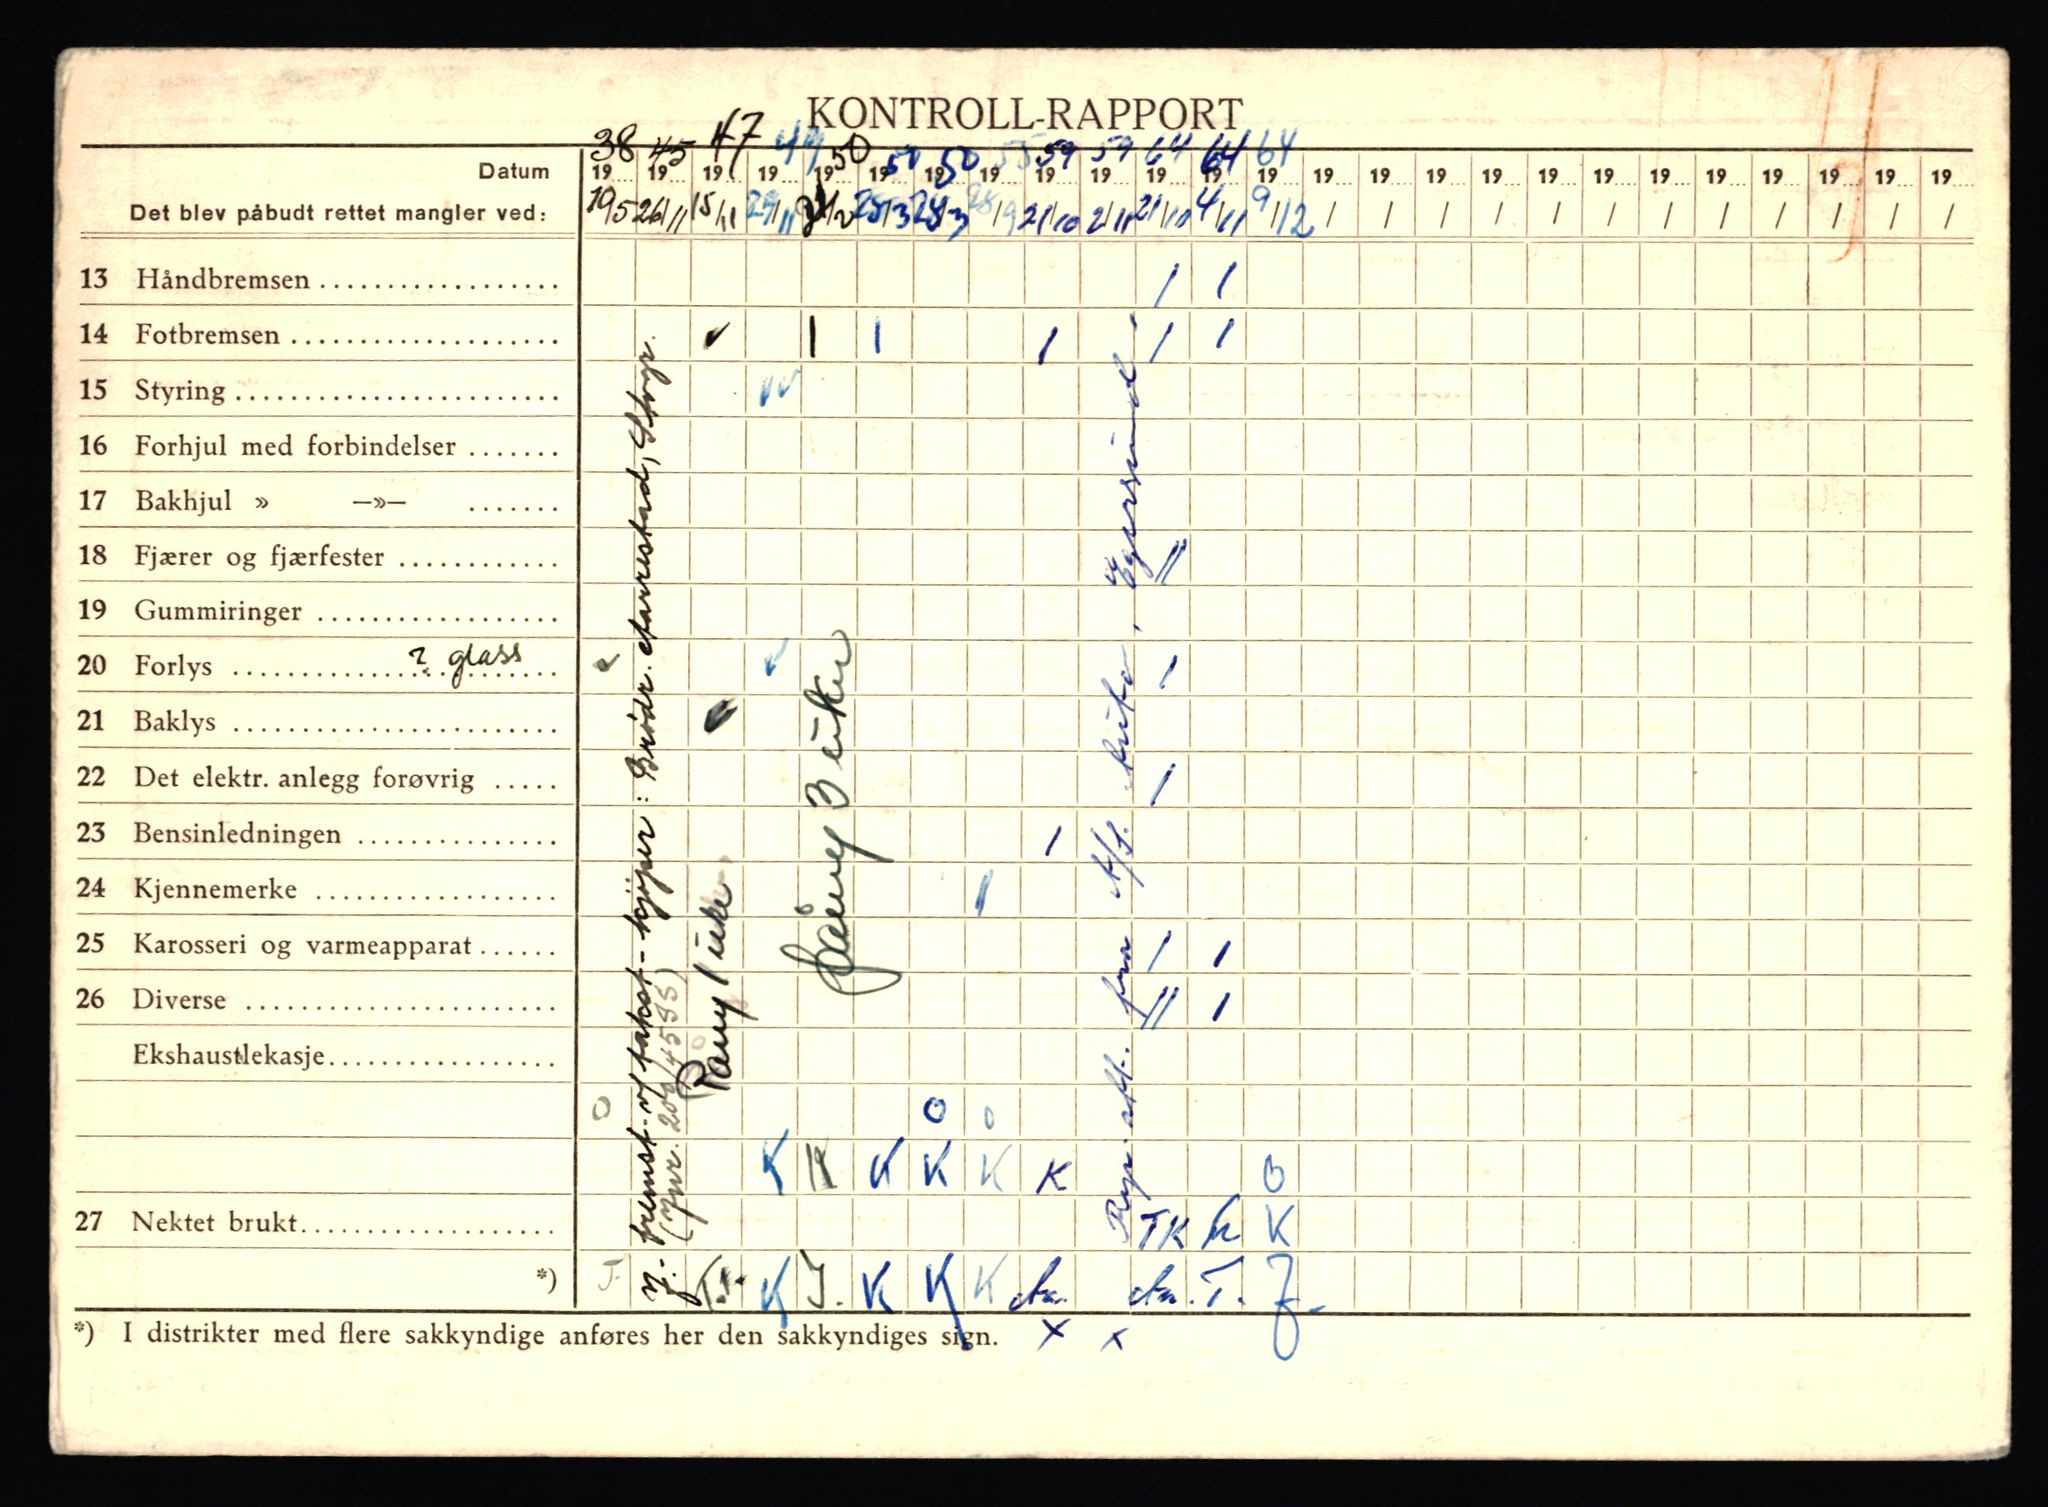 KONTROLL-RAPPORT
38 45 47 49 50 50 50 55 59 59 64 64 64
Datum 19 19 19 19 19 19 19 19 19 19 19 19 19 19 19 19 19 19 19 19 19 19 19 19 19
Det blev påbudt rettet mangler ved: 19/5 26/11 15/11 29/11 /2 28/3 28/3 28/9 21/10 2/11 21/10 4/11 9/12 / / / / / / / / / / / /
13 Håndbremsen / /
14 Fotbremsen ✓ / / / / /
15 Styring ✓✓
16 Forhjul med forbindelser
17 Bakhjul » —»—
18 Fjærer og fjærfester //
19 Gummiringer
20 Forlys ? glass ✓ /
21 Baklys
22 Det elektr. anlegg forøvrig /
23 Bensinledningen /
24 Kjennemerke /
25 Karosseri og varmeapparat / /
26 Diverse // /
Ekshaustlekasje
O O O
K K K K K K O
27 Nektet brukt TK K K
*) J. K J. K K K T.
*) I distrikter med flere sakkyndige anføres her den sakkyndiges sign. x x
fremst. v/ takst - kjøper: Brødr.
Rep. att. fra A/S Auto, Egersund